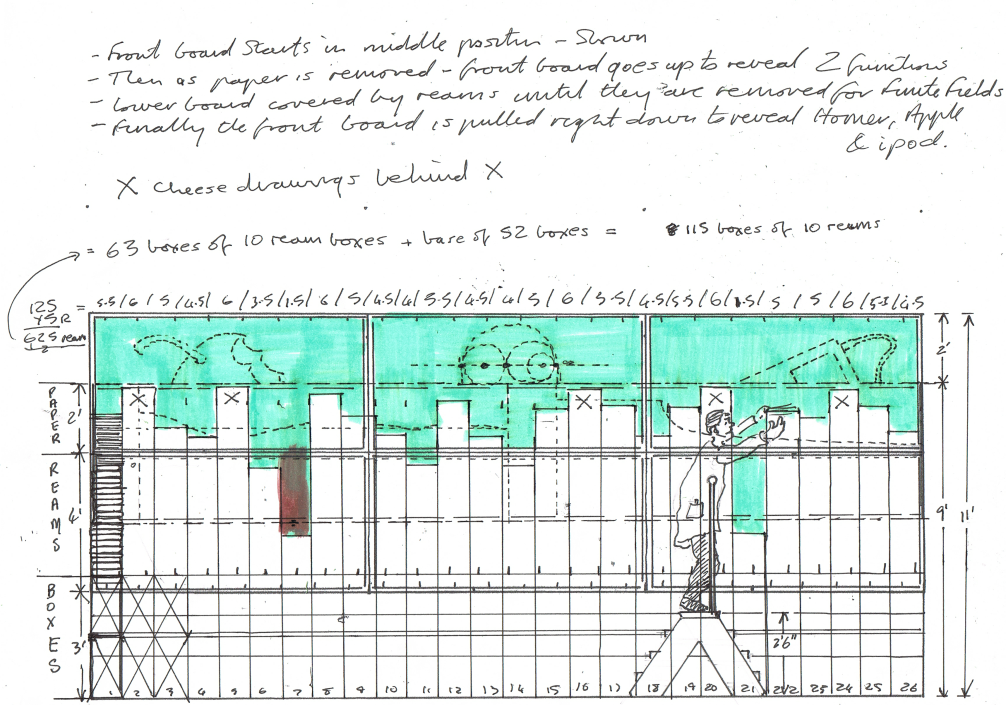 - Front board starts in middle position - Shown
- Then as paper is removed - front board goes up to reveal 2 functions
- Lower board covered by reams until they are removed for finite fields
- Finally the front board is pulled right down to reveal Homer, Apple
& ipod.
X Cheese drawings behind X
= 63 boxes of 10 ream boxes + base of 52 boxes = 115 boxes of 10 reams
125 =
x5R
625 ream
5.5/6/5/4.5/6/3.5/1.5/6/5/4.5/4/5.5/4.5/4/5/6/5.5/4.5/5.5/6/1.5/5/5/6/5.5/4.5
2'
PAPER
2'
X X X X X
REAMS
4'
9'
11'
BOXES
3'
3'6"
1 2 3 4 5 6 7 8 9 10 11 12 13 14 15 16 17 18 19 20 21 25 24 25 26